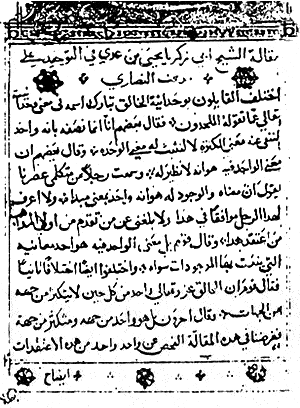 مقالة الشيخ ابي زكريا يحيى بن عدي في التوحيد على
راي النصارى
اختلف القايلون بوحدانية الخالق تبارك اسمه في معنى وحدانيته
تعالى عما تقوله الملحدون فقال بعضهم انا انما نصفه بانه واحد
لننفي عنه معنى الكثرة لا لنثبت له معنى الوحدة وقال بعضهم ان
معنى الواحد فيه هو انه لا نظير له وسمعت رجلا من متكلمي عصرنا
يقول ان معناه والوجود له هو انه واحد بمعنى مبدا ولا اعرف
لهذا الرجل موافقا في هذا ولا بلغني عن من تقدم من اولي المذاهب
من اعتقد هذا وقال قوم بل معنى الواحد فيه هو احد معانيه
التي ينعت بها الموجودات سواه واختلفوا ايضا اختلافا ثانيا
فقال قوم ان الخالق عز وتعالى واحد من كل حين لا يتكثر من جهة
من الجهات وقال اخرون بل هو واحد من جهة ومتكثر من جهة
فغرضنا في هذه المقالة الفحص عن واحد واحد من هذه الاعتقادات
ايضاح